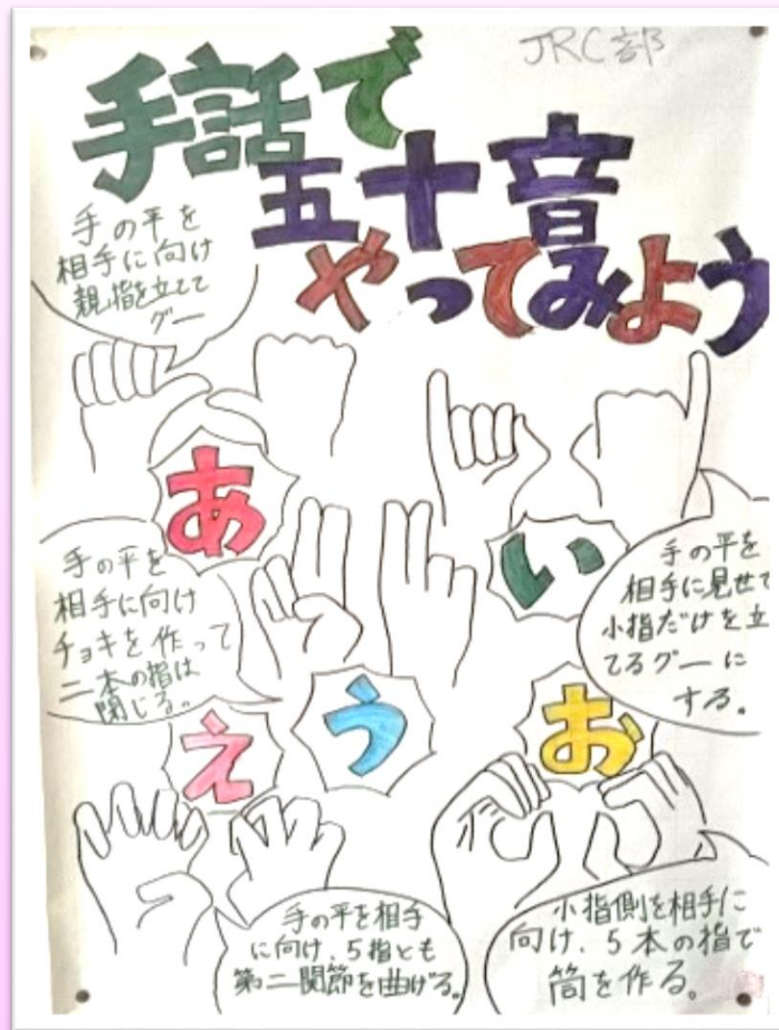 JRC部
手話で
五十音
やってみよう
手の平を
相手に向け
親指を立てて
グー
あ
い
手の平を
相手に向け
チョキを作って
二本の指は
閉じる。
手の平を
相手に見せて
小指だけを立
てるグーに
する。
え
う
お
手の平を相手
に向け、5指とも
第二関節を曲げる。
小指側を相手に
向け、5本の指で
筒を作る。